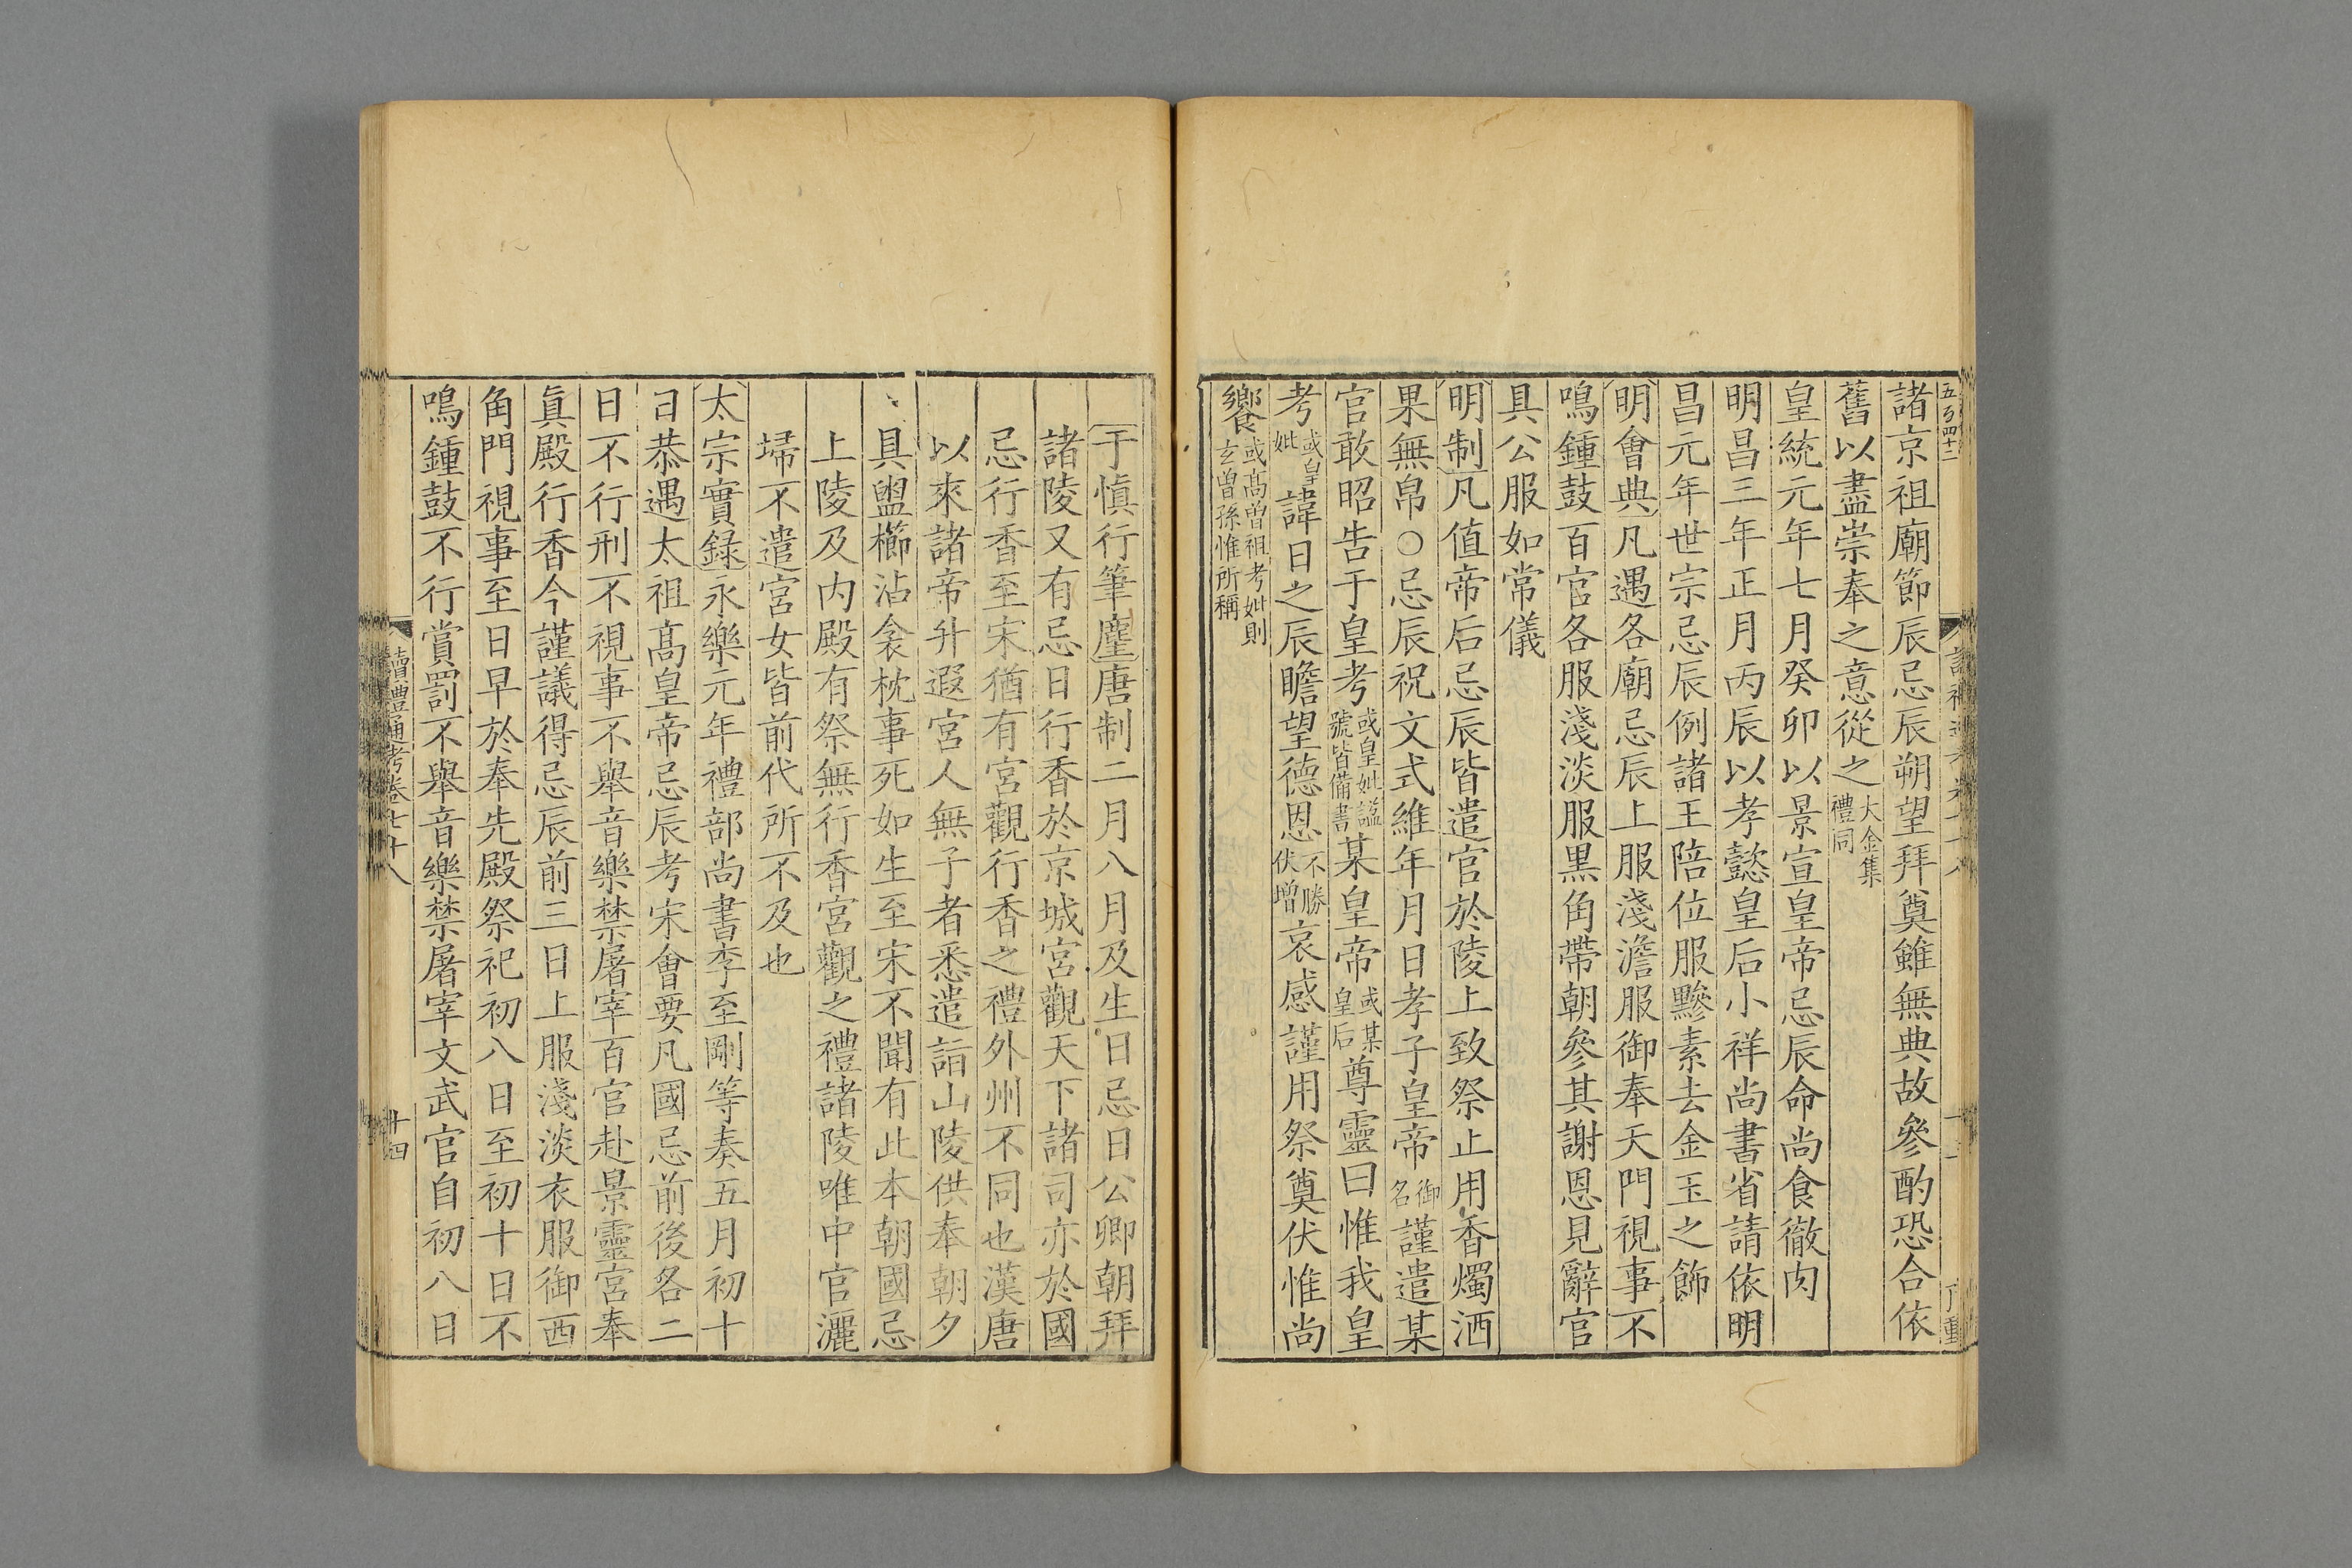 諸京祖廟節辰忌辰朔望拜奠雖無典故參酌恐合依
舊以盡崇奉之意從之大金集禮同
皇統元年七月癸卯以景宣皇帝忌辰命尚食徹肉
明昌三年正月丙辰以孝懿皇后小祥尚書省請依明
昌元年世宗忌辰例諸王陪位服黲素去金玉之飾
明會典凡遇各廟忌辰上服淺澹服御奉天門視事不
鳴鍾鼓百官各服淺淡服黑角帶朝參其謝恩見辭官
具公服如常儀
明制凡值帝后忌辰皆遣官於陵上致祭止用香燭酒
果無帛○忌辰祝文式維年月日孝子皇帝御名謹遣某
官敢昭告于皇考或皇妣謚號皆備書某皇帝或某皇后尊靈曰惟我皇
考或皇妣諱日之辰瞻望德恩不勝伏增哀感謹用祭奠伏惟尚
饗或高曾祖考妣則玄曾孫惟所稱
于慎行筆麈唐制二月八月及生日忌日公卿朝拜
諸陵又有忌日行香於京城宮觀天下諸司亦於國
忌行香至宋猶有宮觀行香之禮外州不同也漢唐
以來諸帝升遐宮人無子者悉遣詣山陵供奉朝夕
具盥櫛沾衾枕事死如生至宋不聞有此本朝國忌
上陵及内殿有祭無行香宮觀之禮諸陵唯中官灑
埽不遣宮女皆前代所不及也
太宗實録永樂元年禮部尚書李至剛等奏五月初十
日恭遇太祖高皇帝忌辰考宋會要凡國忌前後各二
日不行刑不視事不舉音樂禁屠宰百官赴景靈宮奉
眞殿行香今謹議得忌辰前三日上服淺淡衣服御西
角門視事至日早於奉先殿祭祀初八日至初十日不
鳴鍾鼓不行賞罰不舉音樂禁屠宰文武官自初八日
讀禮通考卷七十八
十四